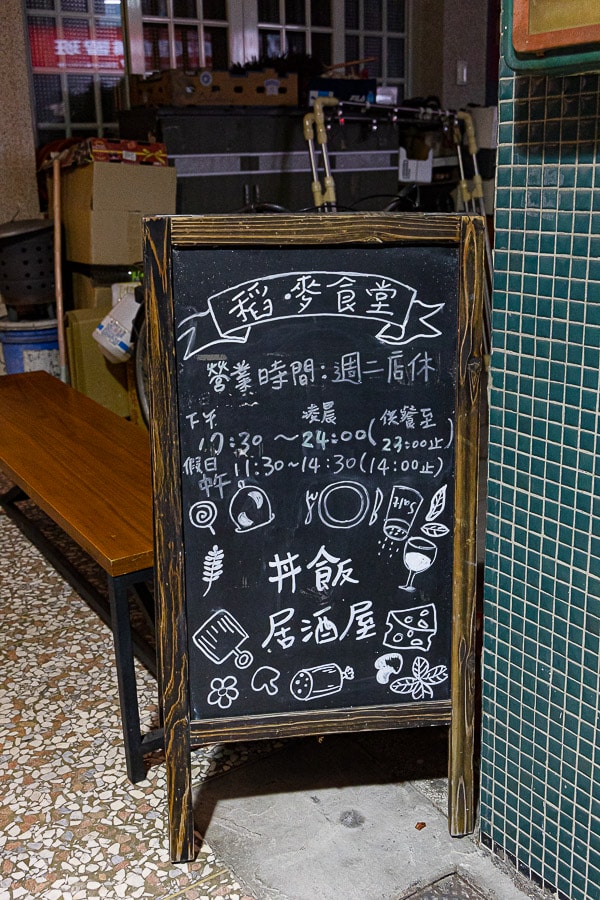 稻·麥食堂
營業時間:週二店休
下午 凌晨 (供餐至
17:30~24:00(23:00止)
假日 11:30~14:30(14:00止)
中午
Salt
丼飯
居酒屋